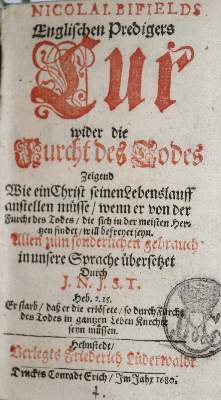 NICOLAI BIFIELDS
Englischen Predigers
Cur
wider die
Furcht des Todes
Zeigend
Wie ein Christ seinen Lebenslauff
anstellen müsse / wenn er von der
Furcht des Todes / die sich in der meisten Her-
tzen findet / will befreyet seyn.
Allen zum sonderlichen gebrauch
in unsere Sprache übersetzet
Durch
J. N. J. S. T.
Heb. 2. 15.
Er starb / daß er die erlösete / so durch Furcht
des Todes in gantzen Leben Knechte
seyn müssen.
Helmstedt /
Verlegts Friederich Lüderwaldt
Druckts Conradt Erich / Im Jahr 1680.